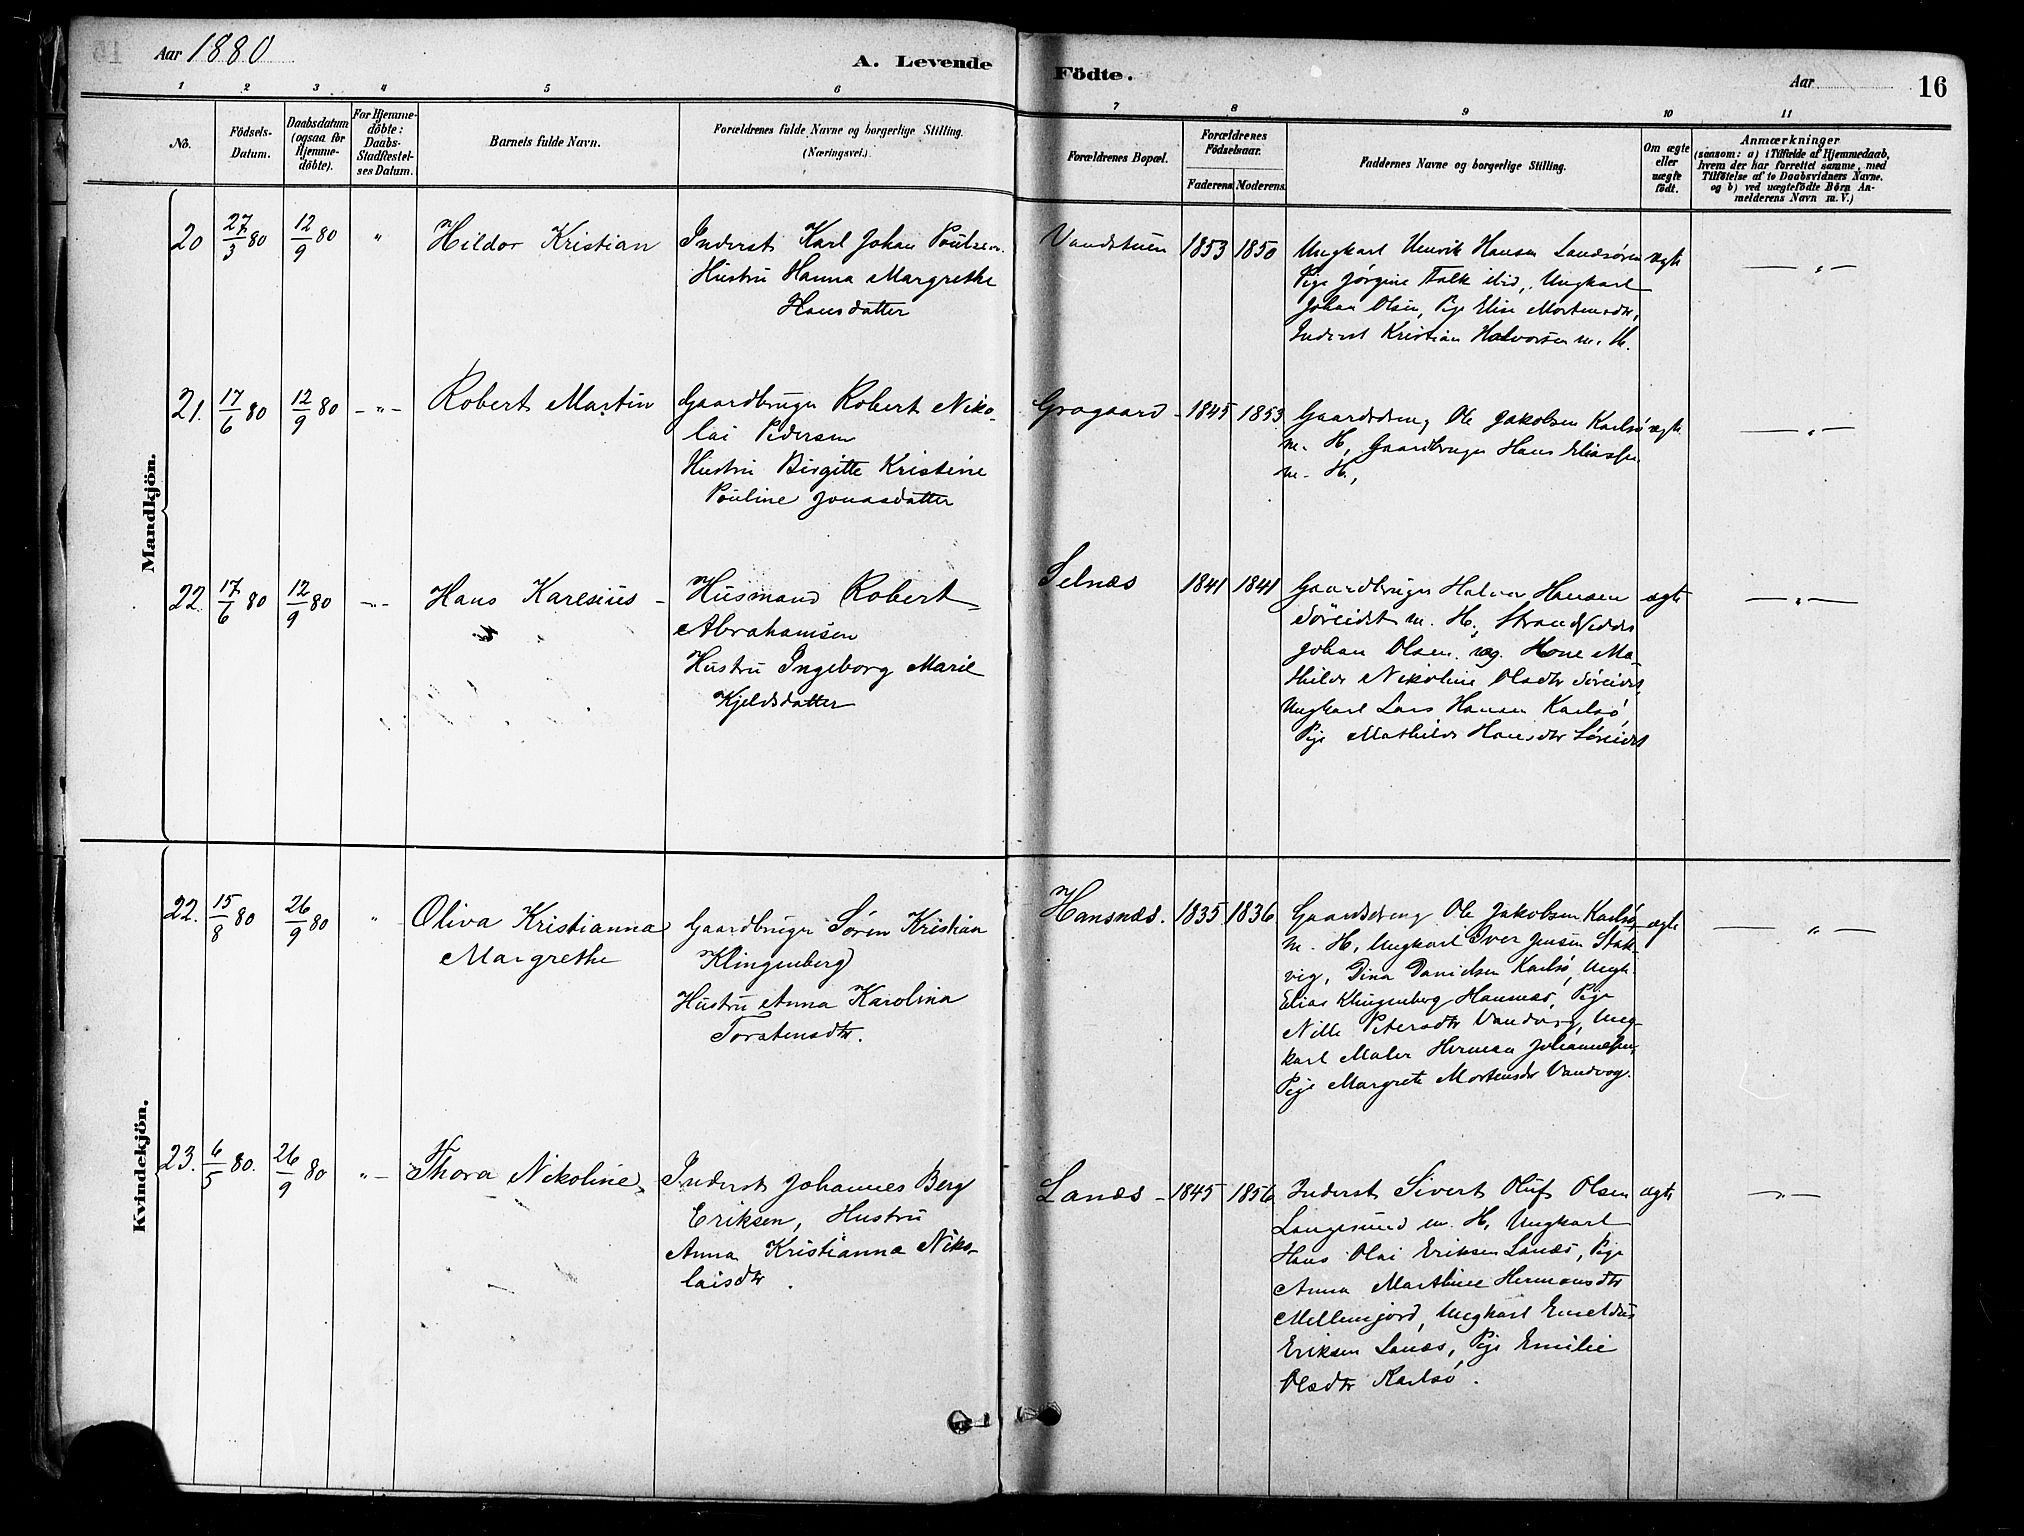 Aar 1880
A. Levende Födte.
Aar
16
1 2 3 4 5 6 7 8 9 10 11
No.
Födsels-Datum.
Daabsdatum (ogsaa for Hjemme-döbte).
For Hjemme-döbte: Daabs-Stadfæstel-ses Datum.
Barnets fulde Navn.
Forældrenes fulde Navne og borgerlige Stilling.
(Næringsvei.)
Forældrenes Bopæl.
Forældrenes Födselsaar.
Faderens. Moderens.
Faddernes Navne og borgerlige Stilling.
Om ægte eller uægte födt.
Anmærkninger
(saasom: a) i Tilfælde af Hjemmedaab,
hvem der har forrettet samme, med
Tilföielse af to Daabsvidners Navne.
og b) ved uægtefödte Börn An-
melderens Navn m. V.)
Mandkjön.
20 27/3 80 12/9 80 " Hildor Kristian
Inderst Karl Johan Poulsen
Hustru Hanna Margrethe
Hansdatter
Vandstuen 1853 1850
Ungkarl Henrik Hansen Landsøren ægte
Pige Jørgine Falk ibid, Ungkarl
Johan Olsen, Pige Elise Mortensdtr,
Inderst Kristian Halvorsen m. H.
— " —
21. 17/6 80 12/9 80 - " - Robert Martin
Gaardbruger Robert Niko-
lai Pedersen
Hustru Birgitte Kristine
Pouline Jonasdatter
Graagaard 1845 1853
Gaardsdreng Ole Jakobsen Karlsö ægte
m. H, Gaardbruger Hans Eliassen
m. H.,
— " —
22. 17/6 80 12/9 80 - " - Hans Karesius
Husmand Robert
Abrahamsen
Hustru Ingeborg Marie
Kjeldsdatter
Selnæs 1841 1841
Gaardbruger Halvor Hansen ægte
Söreidet m. H.,
Johan Olsen og Kone Ma-
thilde Nikoline Olsdtr Söreidet,
Ungkarl Lars Hansen Karlsö,
Pige Mathilde Hansdtr Söreidet
— " —
Kvindekjön.
22. 15/8 80 26/9 80 " Oliva Kristianna
Margrethe
Gaardbruger Sören Kristian
Klingenberg
Hustru Anna Karolina
Torstensdtr.
Hansnæs. 1835 1836
Gaardsdreng Ole Jakobsen Karlsö, ægte
m. H, Ungkarl Iver Jensen Stak-
vig, Dina Danielsen Karlsö, Ungk.
Elias Klingenberg Hansnæs, Pige
Nille Petersdtr Vandvog, Ung-
karl Maler Herman Johannesen,
Pige Margrete Mortensdr Vandvog.
— " —
23. 6/5 80. 26/9 80 " - Thora Nikoline
Inderst Johannes Berg
Eriksen, Hustru
Anna Kristianna Niko-
laisdtr.
Lanæs - 1845 1856
Inderst Sivert Oluf Olsen ægte
Langesund m. H, Ungkarl
Hans Olai Eriksen Lanæs, Pige
Anna Marthine Hermansdtr
Mellemjord, Ungkarl
Eriksen Lanæs, Pige Emilie
Olsdtr Karlsö.
— " —